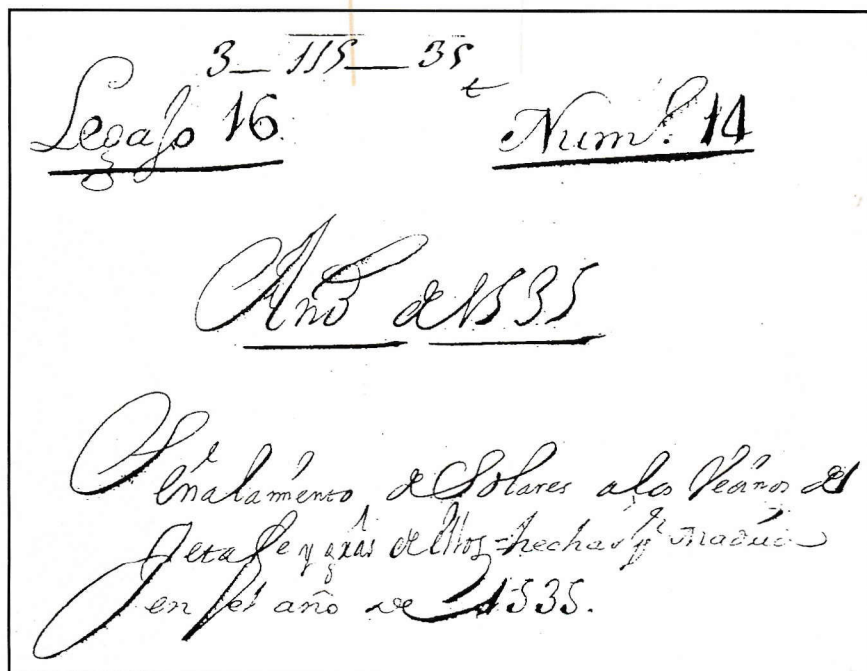 3_ 115_ 35
Legajo 16. Num.º 14
Año de 1535
Señalamento de Solares a los Vecinos de
Jetafe y de ellos = hechas pr Madrid
en el año de 1535.